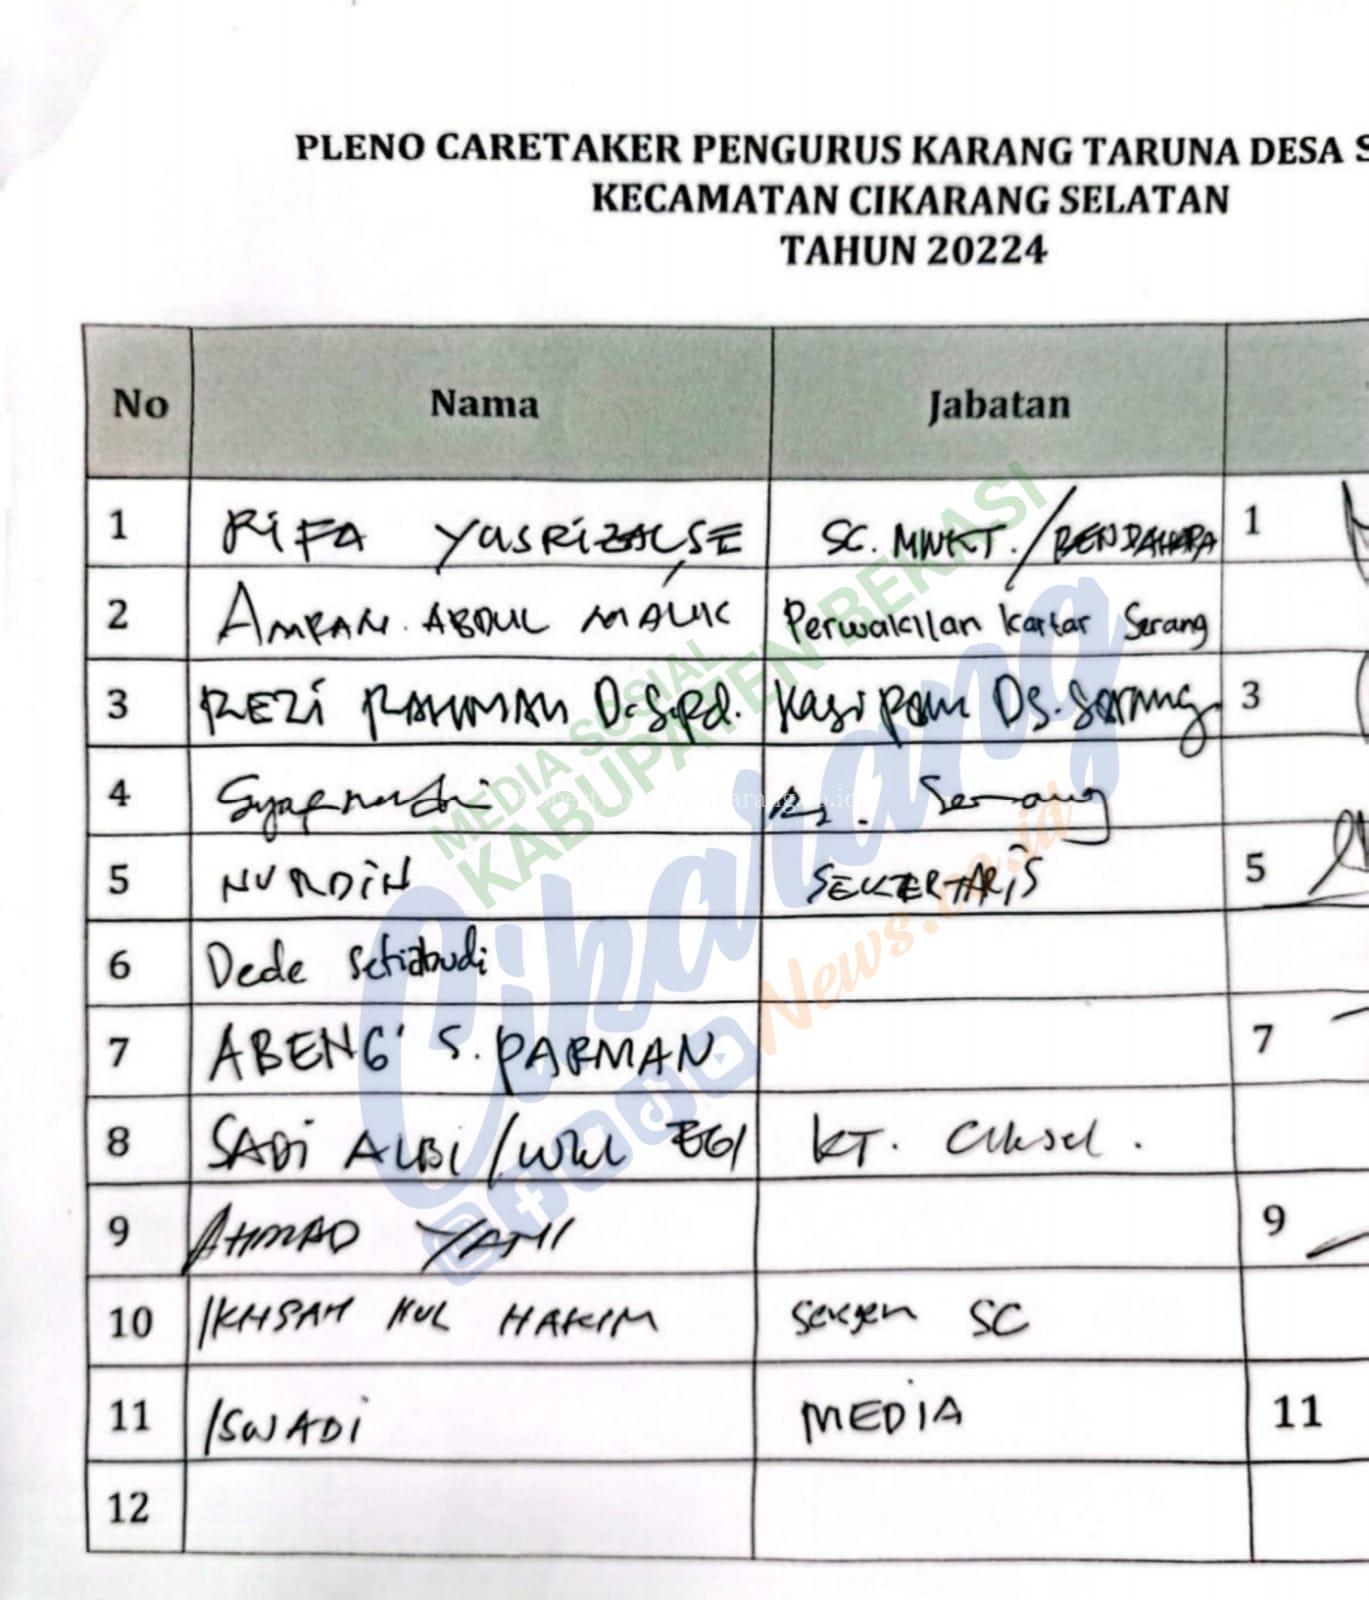 PLENO CARETAKER PENGURUS KARANG TARUNA DESA S
KECAMATAN CIKARANG SELATAN
TAHUN 20224
No Nama Jabatan
1 RIFA YUSRIZAL, SE SC. MWKT. / BENDAHARA 1
2 AMRAN. ABDUL MALIK Perwakilan Kartar Serang
3 REZI RAHMAN D. S.pd. Kasi Pem DS. Serang 3
4 Syafrudin Serang
5 NURDIN SEKERTARIS 5
6 Dede Setiabudi
7 ABENG S. PARMAN 7
8 SADI ALBI / WKL EGI KT. Ciksel.
9 AHMAD YANI 9
10 IKHSAN NUL HAKIM Sekjen SC
11 ISWADI MEDIA 11
12
MEDIA SOSIAL
KABUPATEN BEKASI
Cikarang
News.co.id